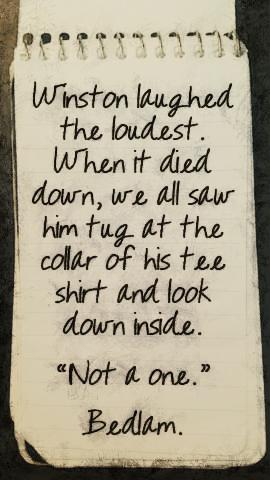 Winston laughed
the loudest.
When it died
down, we all saw
him tug at the
collar of his tee
shirt and look
down inside.
“Not a one.”
Bedlam.